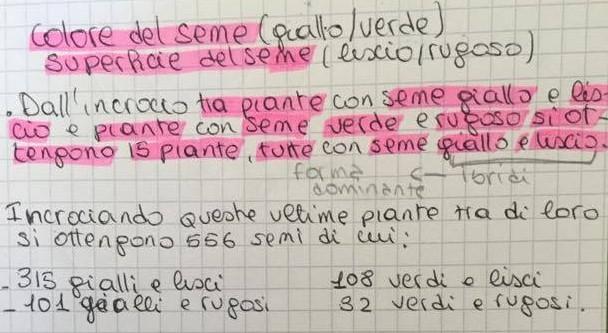 colore del seme (giallo/verde)
superficie del seme (liscio/rugoso)
. Dall'incrocio tra piante con seme giallo e lis-
cio e piante con seme verde e rugoso si ot-
tengono 15 piante, tutte con seme giallo e liscio.
forma ← Ibridi
dominante
Incrociando queste ultime piante tra di loro
si ottengono 556 semi di cui:
- 315 gialli e lisci 108 verdi e lisci
- 101 gialli e rugosi 32 verdi e rugosi.